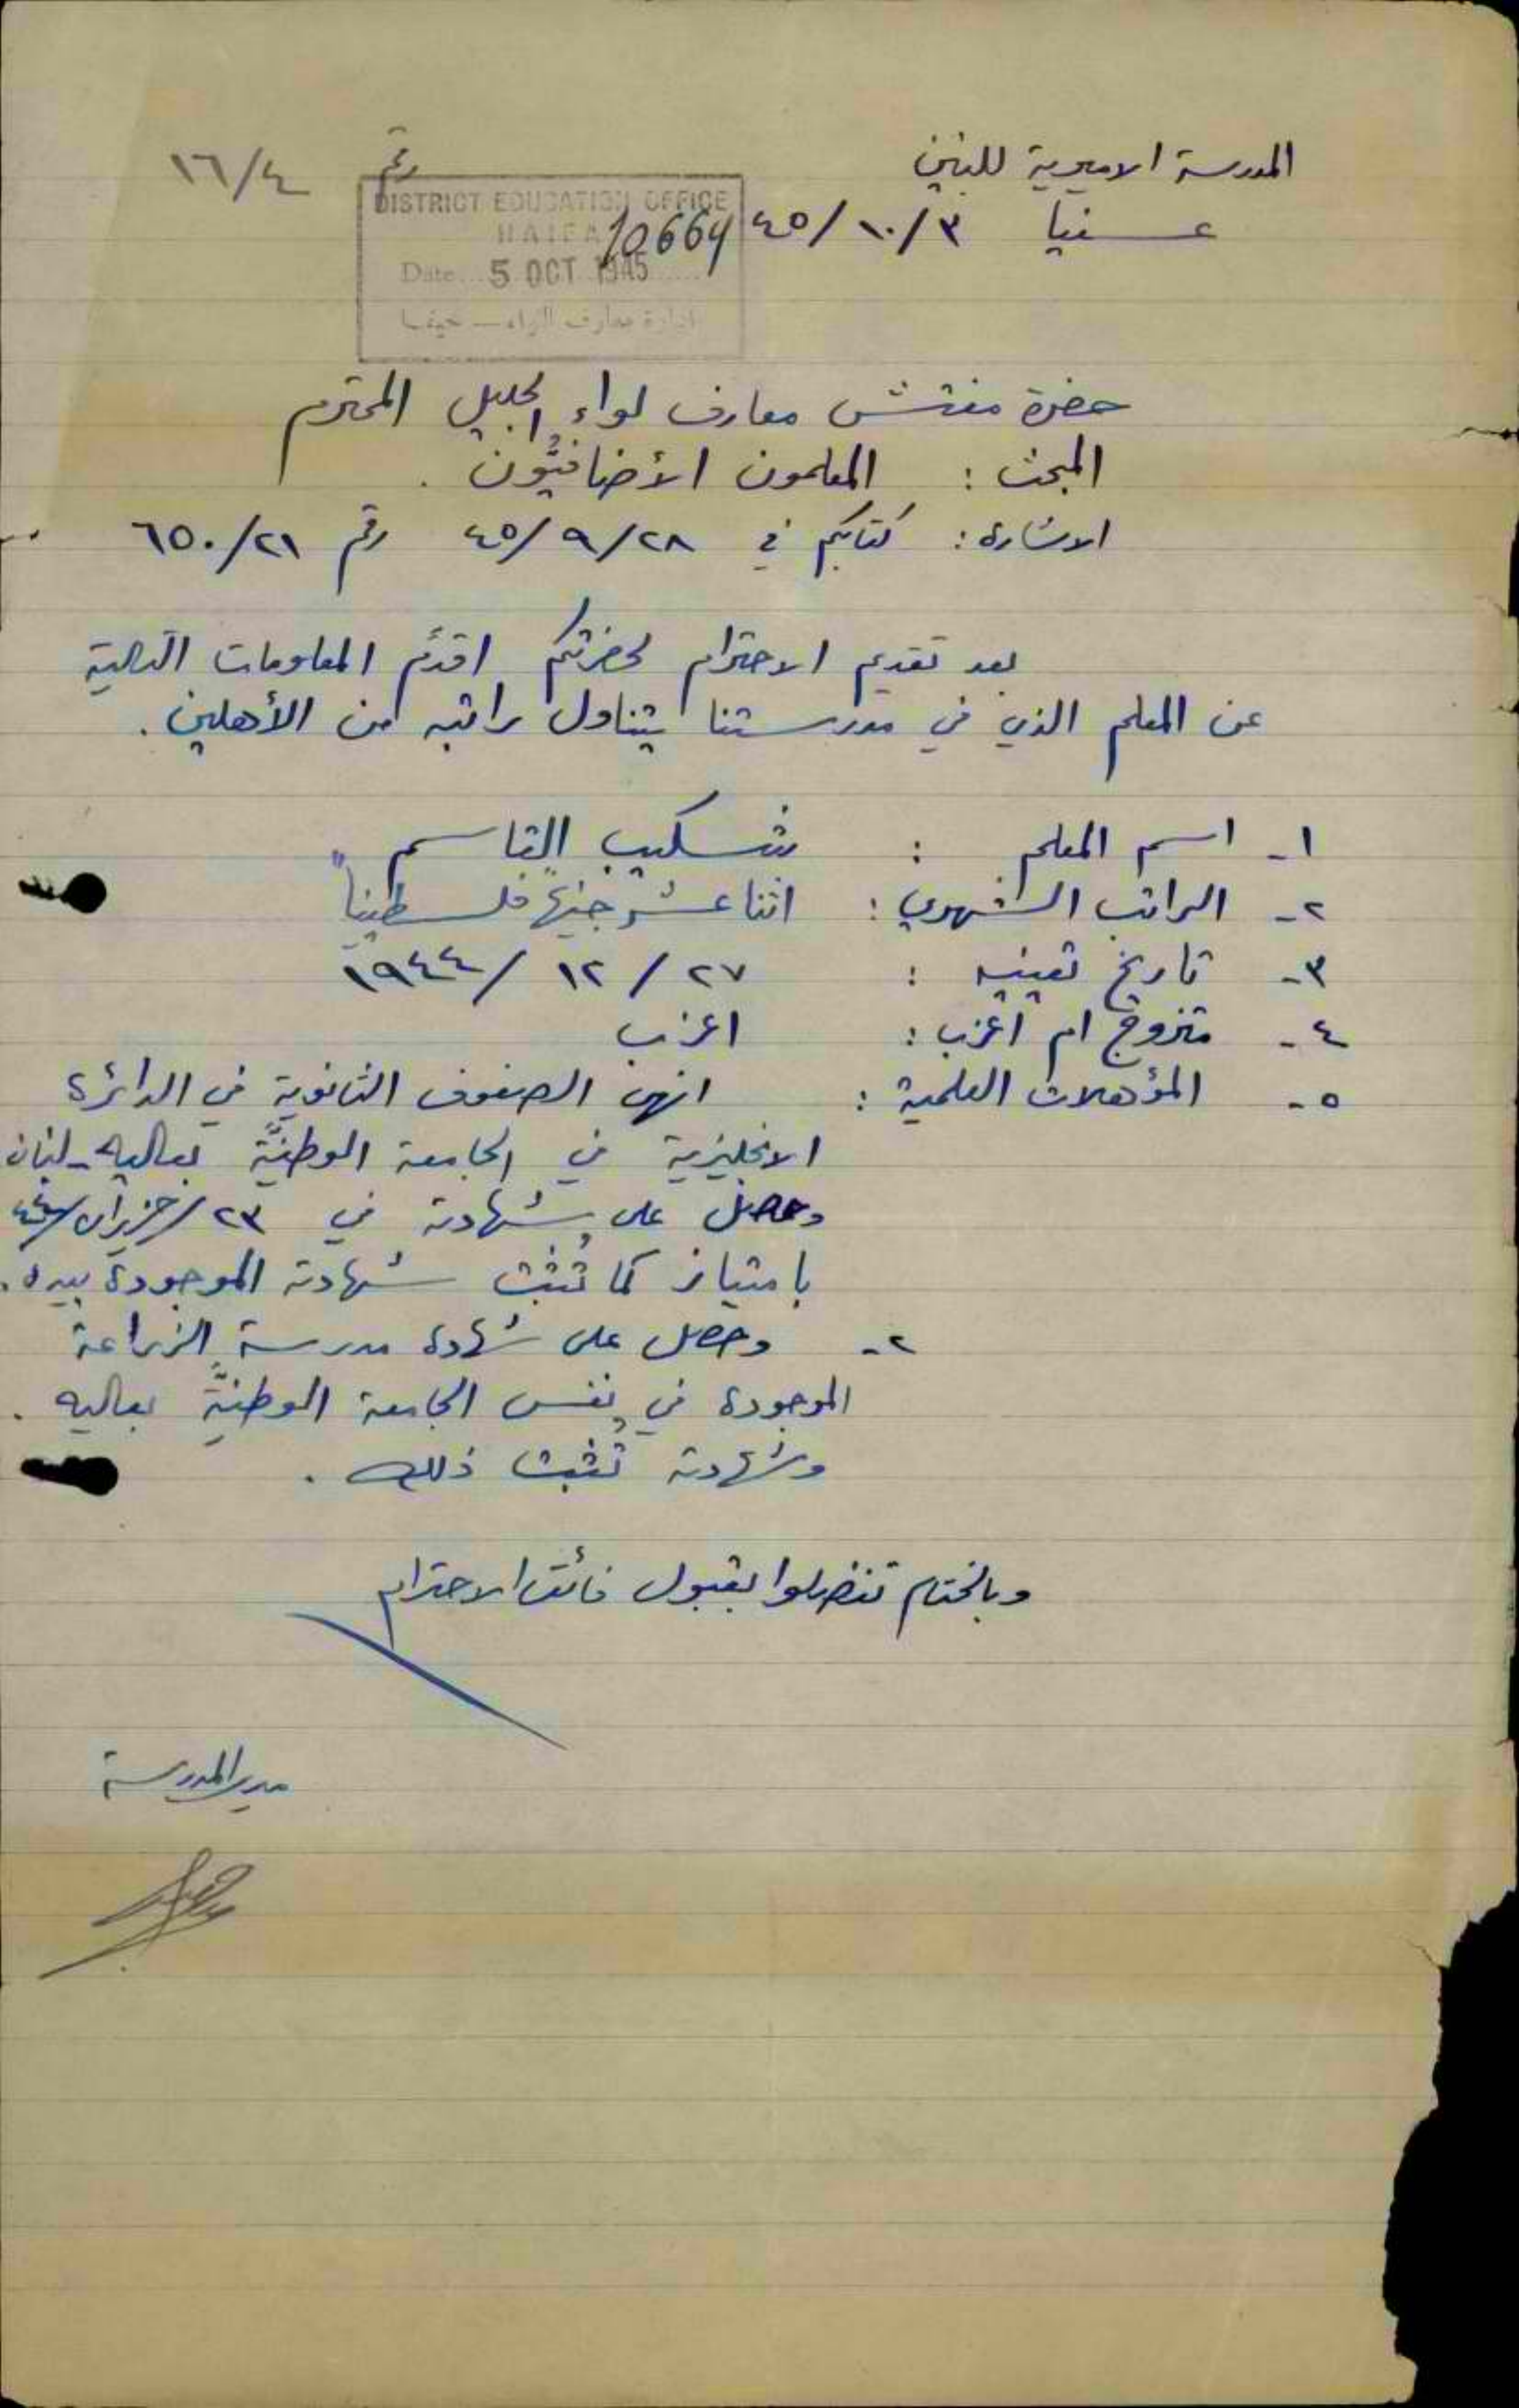 المدرسة الاميرية للبنين
رقم ١٦/٤
عسفيا ٤٥/١٠/٣
DISTRICT EDUCATION OFFICE
HAIFA
10664
Date 5 OCT 1945
ادارة معارف اللواء — حيفا
حضرة مفتش معارف لواء الجليل المحترم
المبحث : المعلمون الأضافيّون .
الاشارة : كتابكم في ٤٥/٩/٢٨ رقم ٦٥٠/٢١
بعد تقديم الاحترام لحضرتكم اقدّم المعلومات التالية
عن المعلم الذي في مدرستنا يتناول راتبه من الأهلين .
١- اسم المعلم : شكيب القاسم
٢- الراتب الشهري : "اثنا عشر جنيهاً فلسطينياً"
٣- تاريخ تعيينه : ٢٧ / ١٢ / ١٩٤٤
٤- متزوج ام أعزب : اعزب
٥- المؤهلات العلمية : انهى الصفوف الثانوية في الدائرة
الانجليزية في الجامعة الوطنيّة بعاليه - لبنان
وحصل على شهادته في ٢٣/حزيران/٤٤
بامتياز كما تُثبت شهادته الموجودة بيده .
٢- وحصل على شهادة مدرسة الزراعة
الموجودة في نفس الجامعة الوطنيّة بعاليه .
وشهادته تُثبت ذلك .
وبالختام تفضلوا بقبول فائق الاحترام
مدير المدرسة